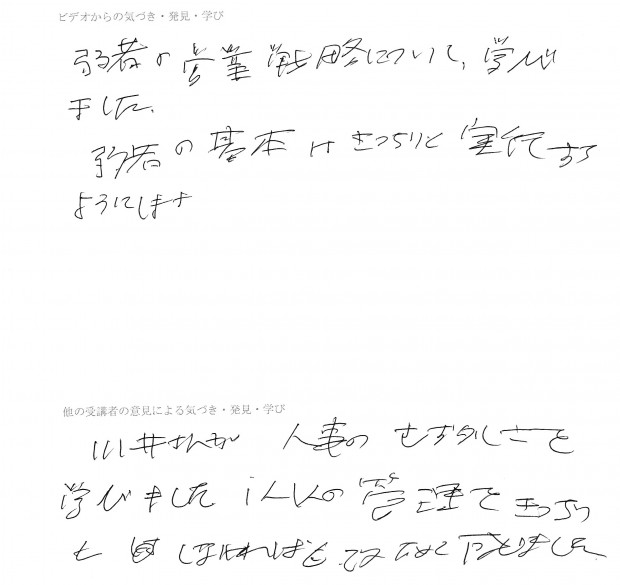 ビデオからの気づき・発見・学び
弱者の営業戦略について、学び
ました。
弱者の基本はきっちりと実行する
ようにします
他の受講者の意見による気づき・発見・学び
川井さんが 人事のむずかしさを
学びました 人の管理をきっちり
と しなければと 改めて